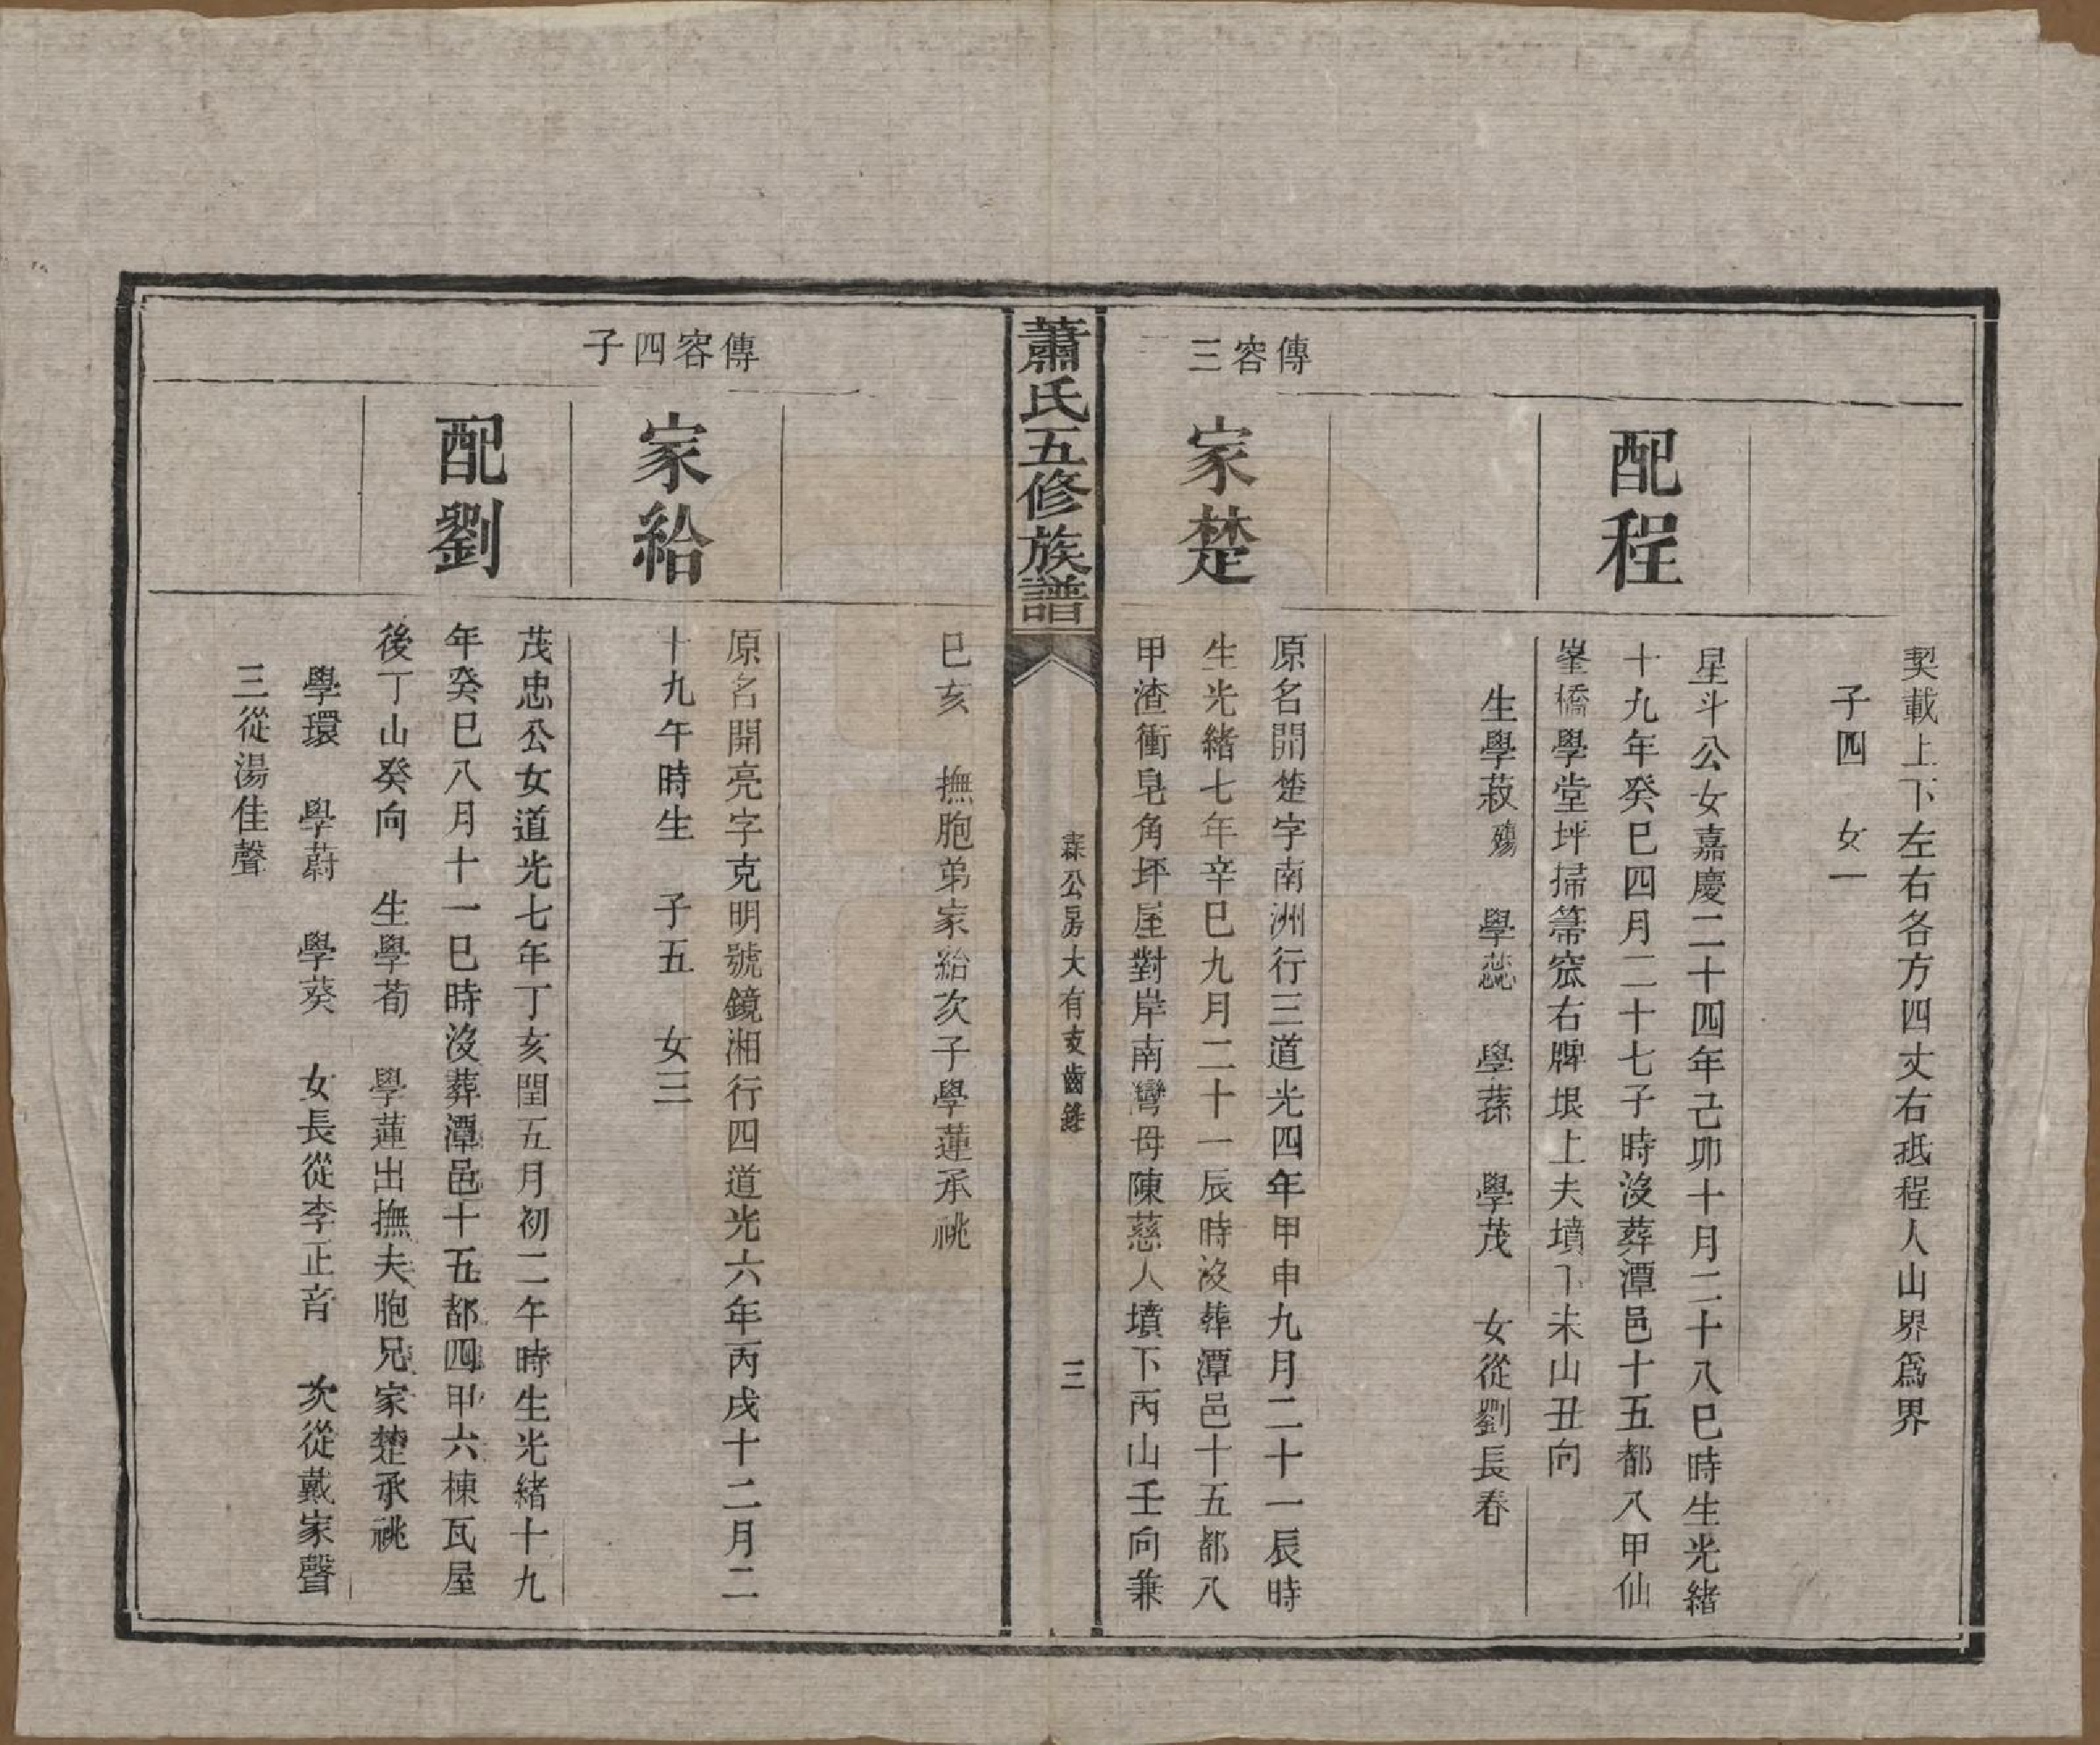 契載上下左右各方四丈右抵程人山界爲界
子四　女一
配程
星斗公女嘉慶二十四年己卯十月二十八巳時生光緒
十九年癸巳四月二十七子時沒葬潭邑十五都八甲仙
峯橋學堂坪掃箒窊右牌垠上夫墳下未山丑向
生學菽殤　學蕊　學蓀　學茂　女從劉長春
傳容三
家楚
原名開楚字南洲行三道光四年甲申九月二十一辰時
生光緒七年辛巳九月二十一辰時沒葬潭邑十五都八
甲渣衝皂角坪屋對岸南灣母陳慈人墳下丙山壬向兼
蕭氏五修族譜
公房大有支齒錄
三
巳亥　撫胞弟家給次子學蓮承祧
傳容四子
家給
原名開亮字克明號鏡湘行四道光六年丙戌十二月二
十九午時生　子五　女三
配劉
茂忠公女道光七年丁亥閏五月初二午時生光緒十九
年癸巳八月十一巳時沒葬潭邑十五都四甲六棟瓦屋
後丁山癸向　生學荀　學蓮出撫夫胞兄家楚承祧
學環　學蔚　學葵　女長從李正音　次從戴家聲
三從湯佳聲